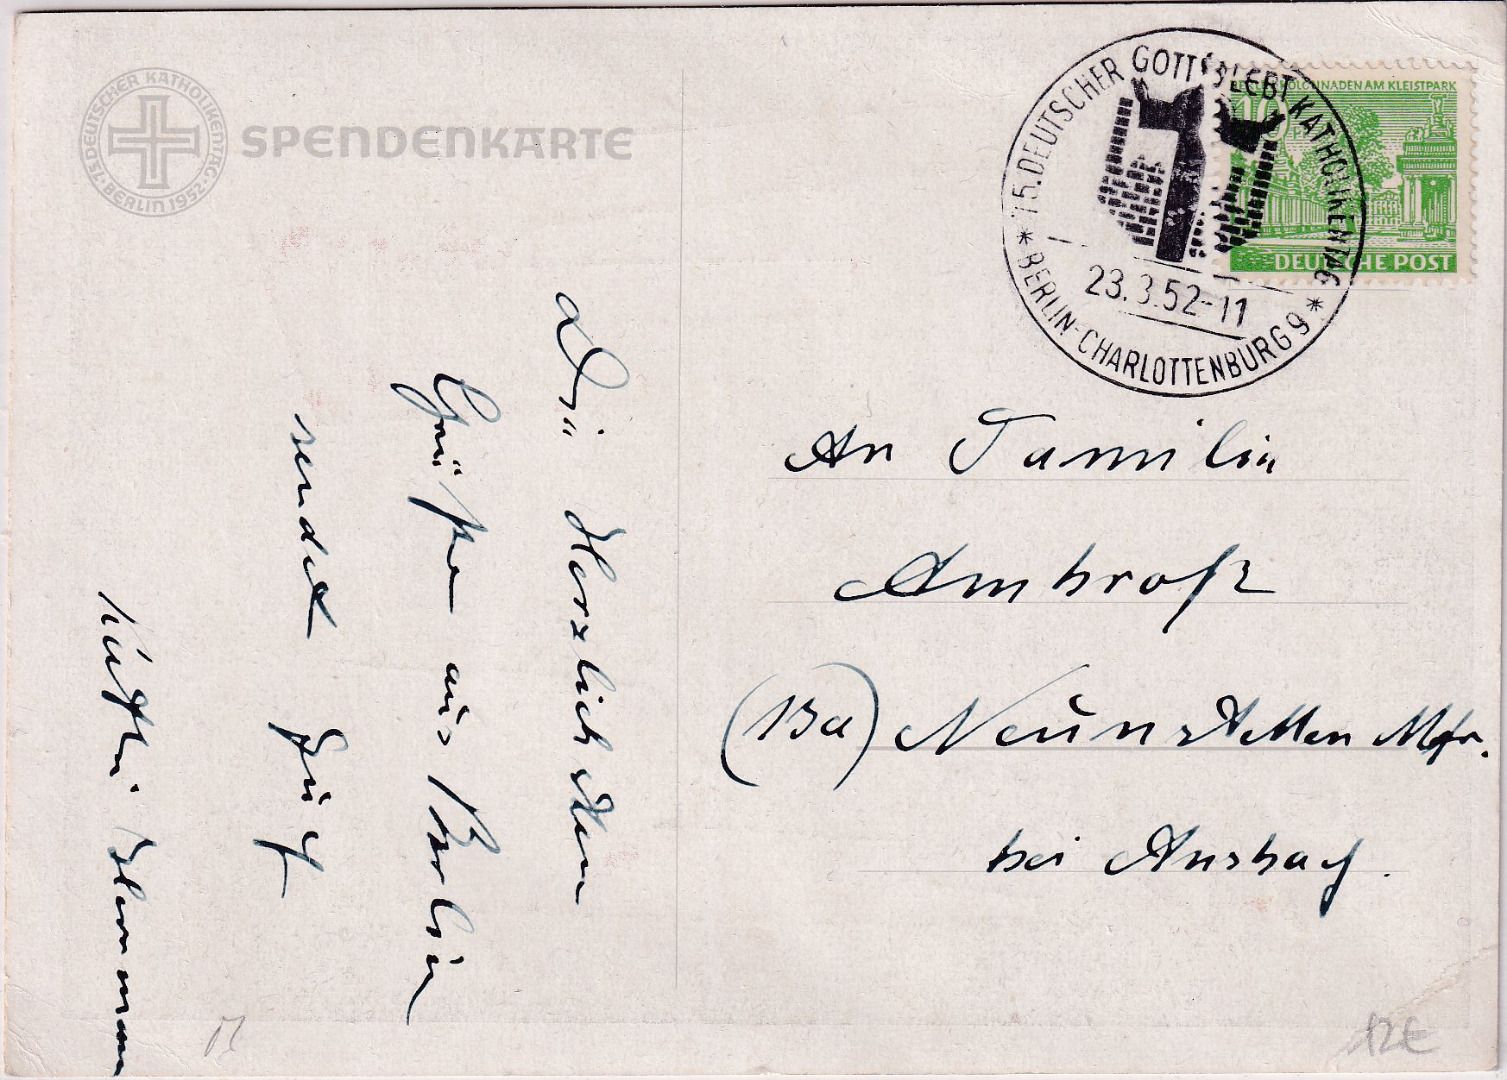 75. DEUTSCHER KATHOLIKENTAG · BERLIN 1952 ·
SPENDENKARTE
75. DEUTSCHER GOTT LEBT KATHOLIKENTAG
* BERLIN-CHARLOTTENBURG 9 *
23.3.52-11
KOLONNADEN AM KLEISTPARK
10
DEUTSCHE POST
Die Herzlichsten
Grüße aus Berlin
sendet Euch
An Familie
Ambroß
(13a) Neunstetten Mfr.
bei Ansbach.
12€